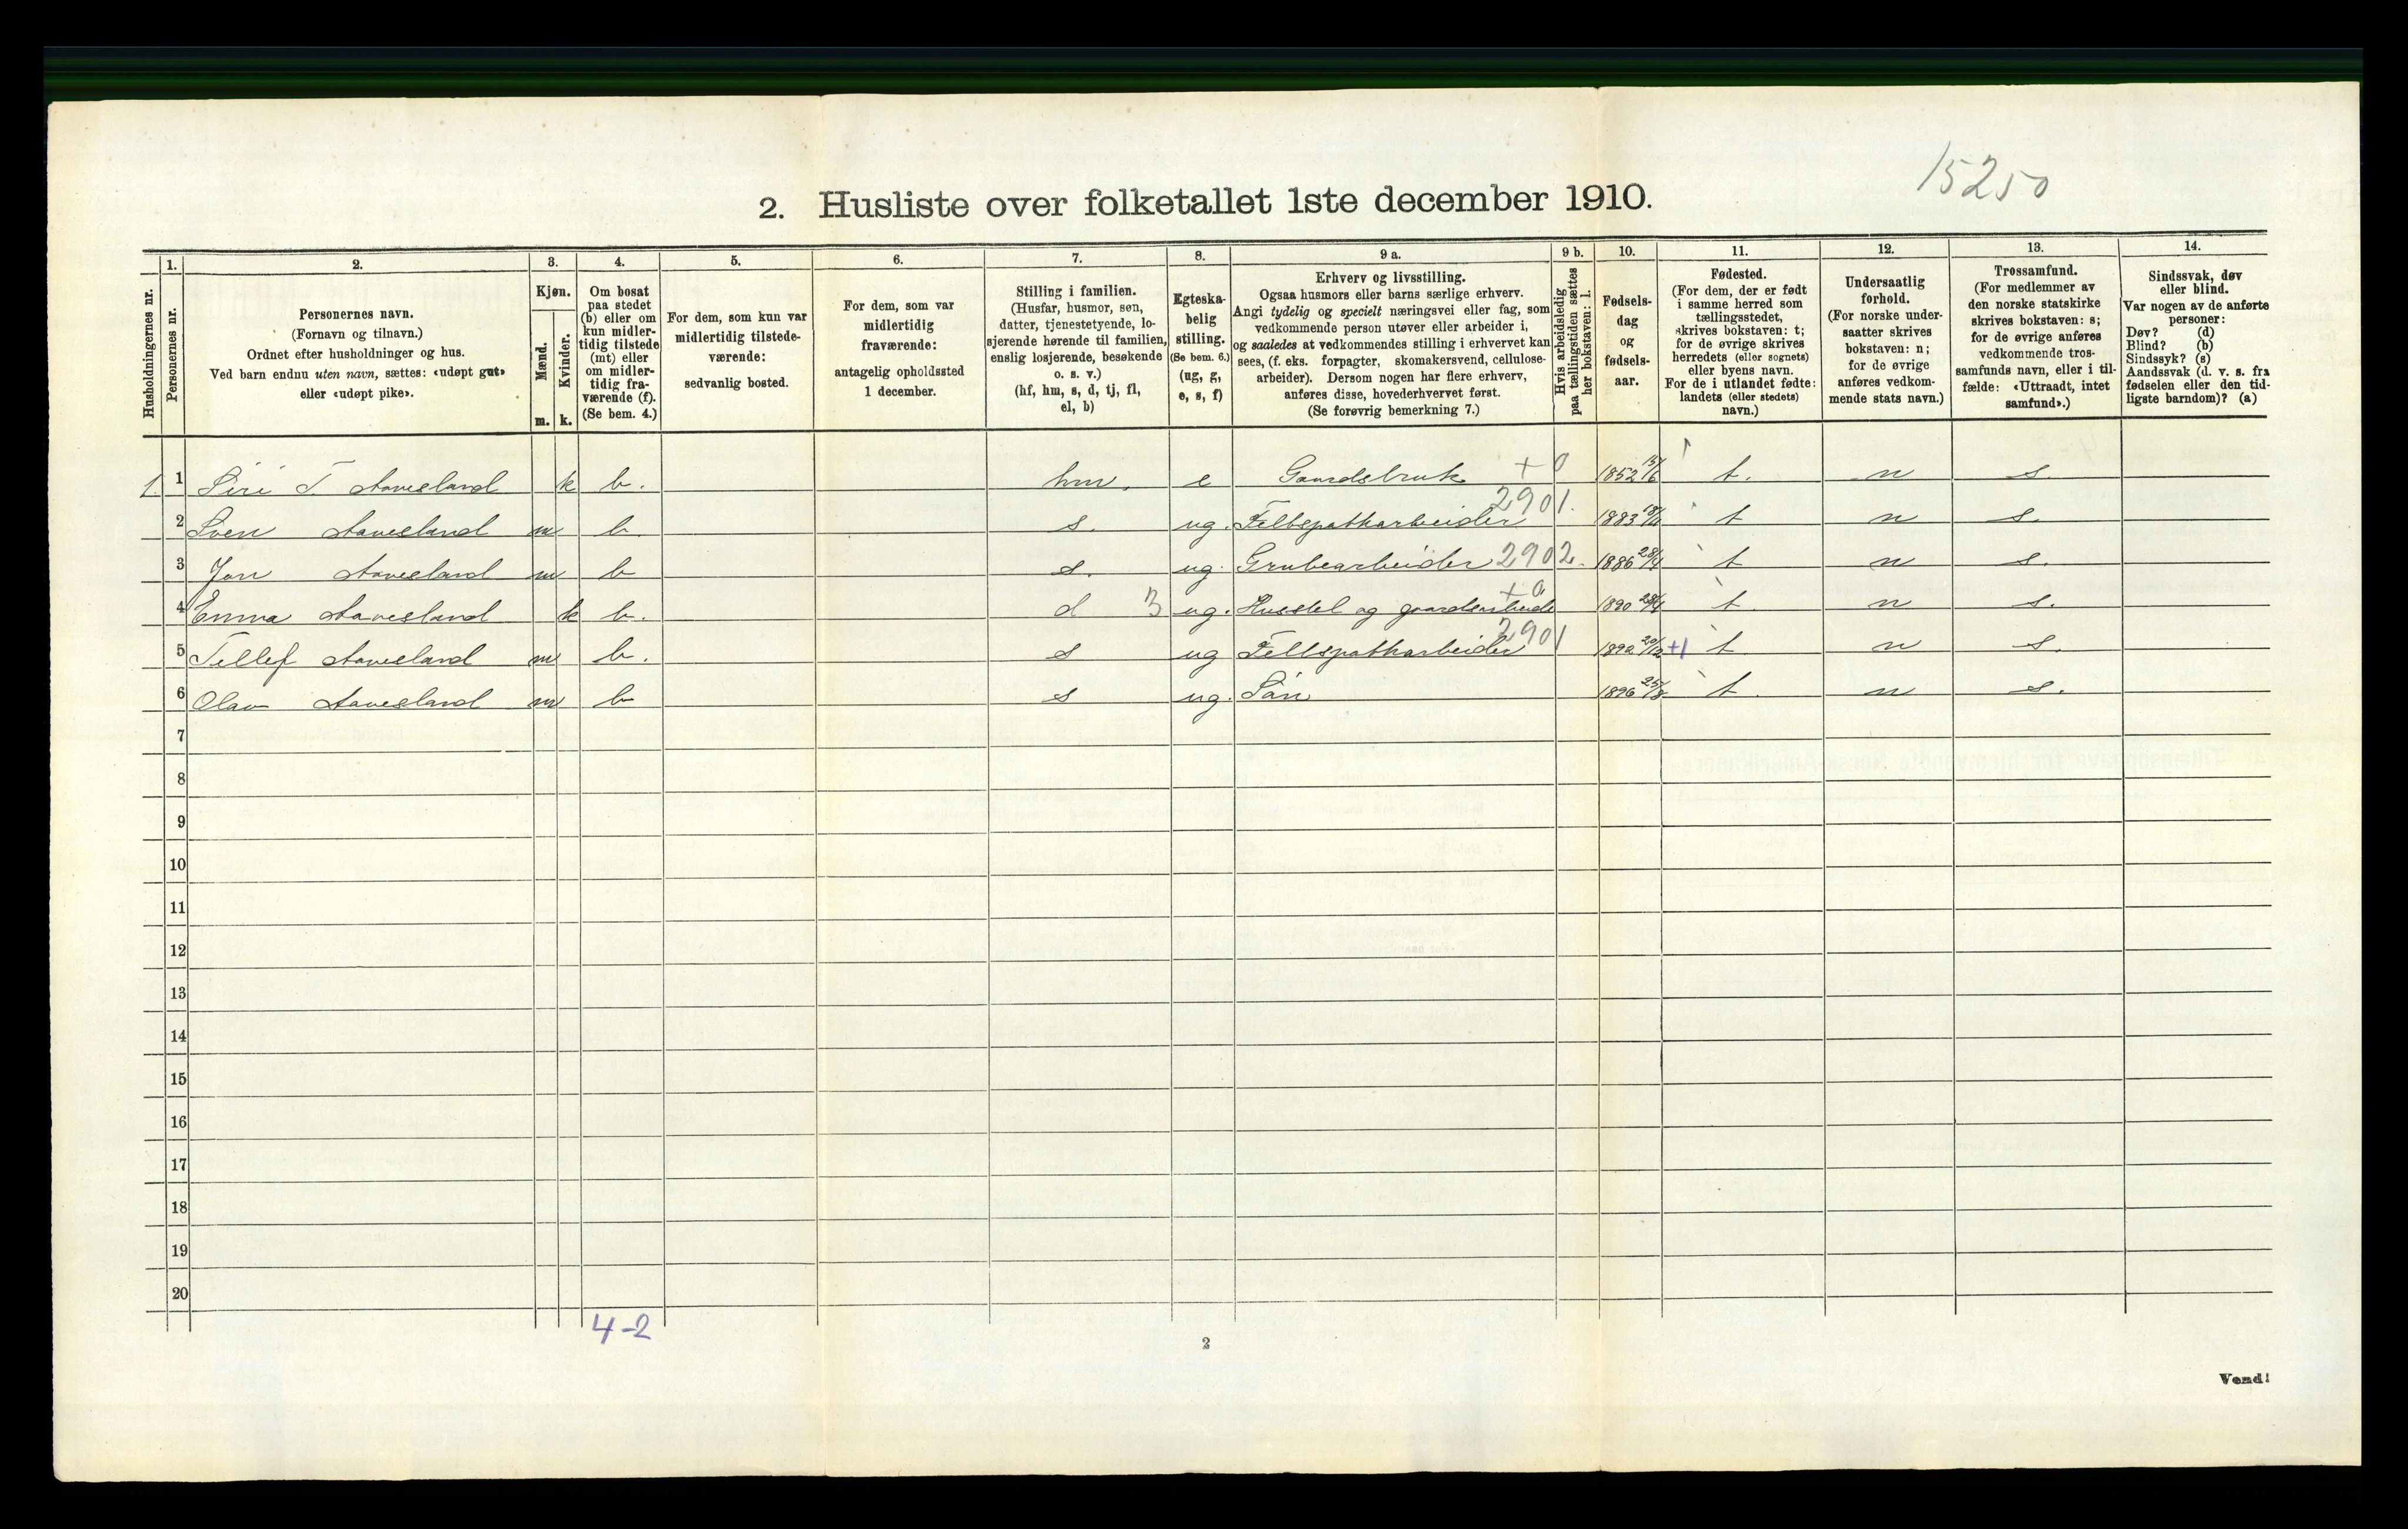 15250
2. Husliste over folketallet 1ste december 1910.
Husholdningernes nr.
1. Personernes nr.
2. Personernes navn.
(Fornavn og tilnavn.)
Ordnet efter husholdninger og hus.
Ved barn endnu uten navn, sættes: «udøpt gut»
eller «udøpt pike».
3. Kjøn.
Mænd. m.
Kvinder. k.
4. Om bosat
paa stedet
(b) eller om
kun midler-
tidig tilstede
(mt) eller
om midler-
tidig fra-
værende (f).
(Se bem. 4.)
5. For dem, som kun var
midlertidig tilstede-
værende:
sedvanlig bosted.
6. For dem, som var
midlertidig
fraværende:
antagelig opholdssted
1 december.
7. Stilling i familien.
(Husfar, husmor, søn,
datter, tjenestetyende, lo-
sjerende hørende til familien,
enslig losjerende, besøkende
o. s. v.)
(hf, hm, s, d, tj, fl,
el, b)
8. Egteska-
belig
stilling.
(Se bem. 6.)
(ug, g,
e, s, f)
9 a. Erhverv og livsstilling.
Ogsaa husmors eller barns særlige erhverv.
Angi tydelig og specielt næringsvei eller fag, som
vedkommende person utøver eller arbeider i,
og saaledes at vedkommendes stilling i erhvervet kan
sees, (f. eks. forpagter, skomakersvend, cellulose-
arbeider). Dersom nogen har flere erhverv,
anføres disse, hovederhvervet først.
(Se forøvrig bemerkning 7.)
9 b. Hvis arbeidsledig
paa tællingstiden sættes
her bokstaven: l.
10. Fødsels-
dag
og
fødsels-
aar.
11. Fødested.
(For dem, der er født
i samme herred som
tællingsstedet,
skrives bokstaven: t;
for de øvrige skrives
herredets (eller sognets)
eller byens navn.
For de i utlandet fødte:
landets (eller stedets)
navn.)
12. Undersaatlig
forhold.
(For norske under-
saatter skrives
bokstaven: n;
for de øvrige
anføres vedkom-
mende stats navn.)
13. Trossamfund.
(For medlemmer av
den norske statskirke
skrives bokstaven: s;
for de øvrige anføres
vedkommende tros-
samfunds navn, eller i til-
fælde: «Uttraadt, intet
samfund».)
14. Sindssvak, døv
eller blind.
Var nogen av de anførte
personer:
Døv? (d)
Blind? (b)
Sindssyk? (s)
Aandssvak (d. v. s. fra
fødselen eller den tid-
ligste barndom)? (a)
1. 1 Siri T. Aavesland k b. hm. e Gaardsbruk +0 1852 15/6 t. n s.
2 Sven Aavesland m b. s. ug. Feltspatharbeider 2901. 1883 t n s.
3 Jon Aavesland m b s. ug. Grubearbeider 2902. 1886 28/4 t n s.
4 Emma Aavesland k b. d 3 ug. Husstel og gaardsarbeide +0 1890 t. n s.
5 Tellef Aavesland m b. s ug Feltspatharbeider 2901 1892 29/12 +1 t n s.
6 Olav Aavesland m b s ug. Søn 1896 25/8 t. n s.
7
8
9
10
11
12
13
14
15
16
17
18
19
20
4-2
2
Vend!